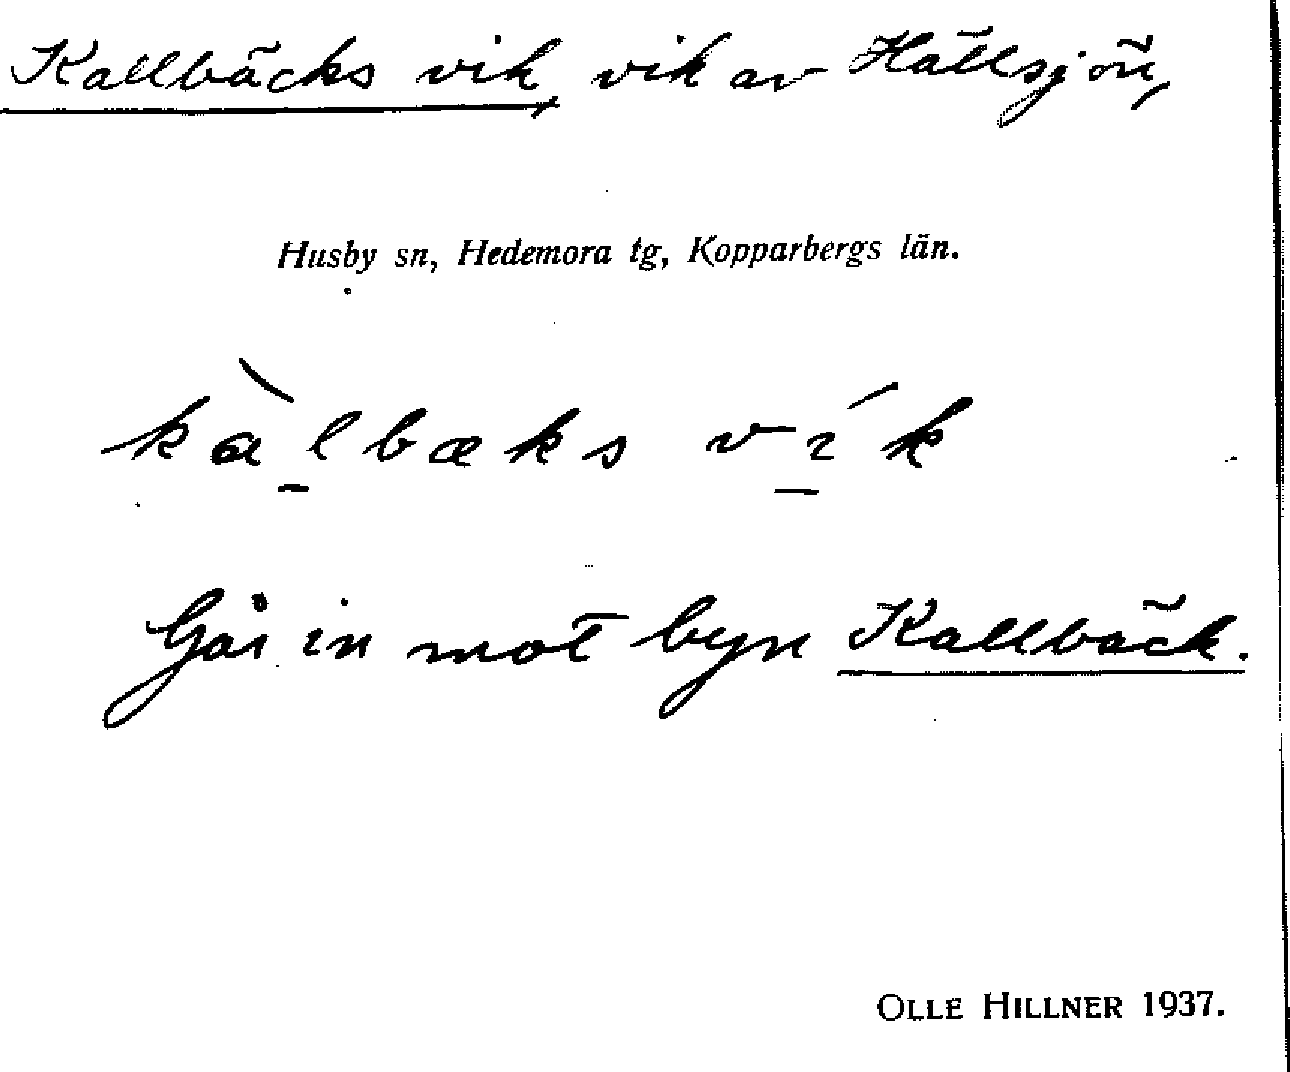 Kallbäcks vik, vik av Hällsjön,
Husby sn, Hedemora tg, Kopparbergs län.
kàlbæks vík
Går in mot byn Kallbäck.
OLLE HILLNER 1937.